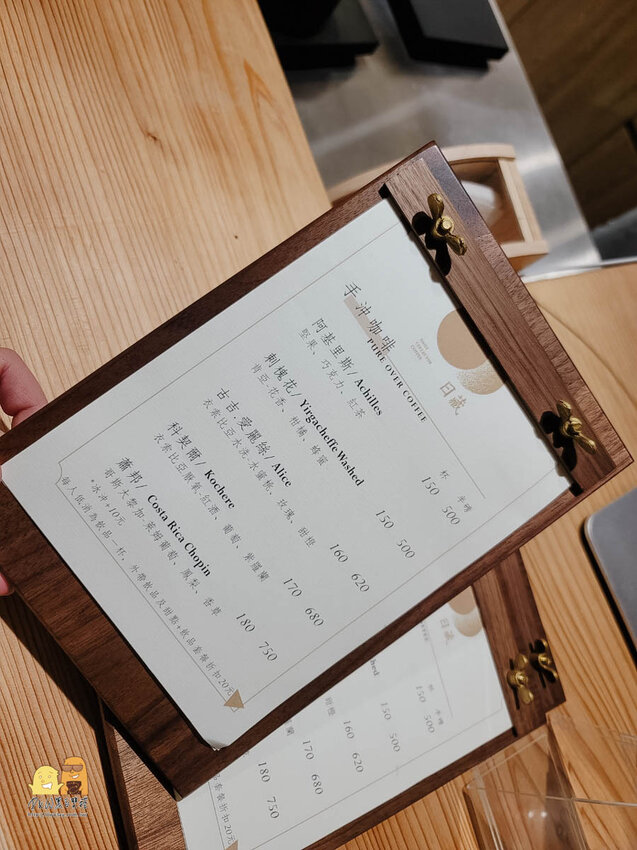 日藏
手沖咖啡
PURE OVER COFFEE
杯 半磅
阿基里斯/ Achilles 150 500
堅果、巧克力、紅茶
刺槐花/ Yirgacheffe Washed 150 500
花香、柑橘、蜂蜜
古吉.愛麗絲/ Alice 160 620
衣索比亞水洗.水蜜桃、玫瑰、甜橙
科契爾/ Kochere 170 680
衣索比亞厭氧.紅酒、葡萄、紫羅蘭
蕭邦/ Costa Rica Chopin 180 750
哥斯大黎加.萊姆葡萄、鳳梨、香草
*冰沖+10元
每人低消為飲品一杯，外帶飲品及甜點+飲品套餐折扣20元
日藏
杯 半磅
150 500
Washed 150 500
甜橙 160 620
蘭 170 680
180 750
套餐折扣20元